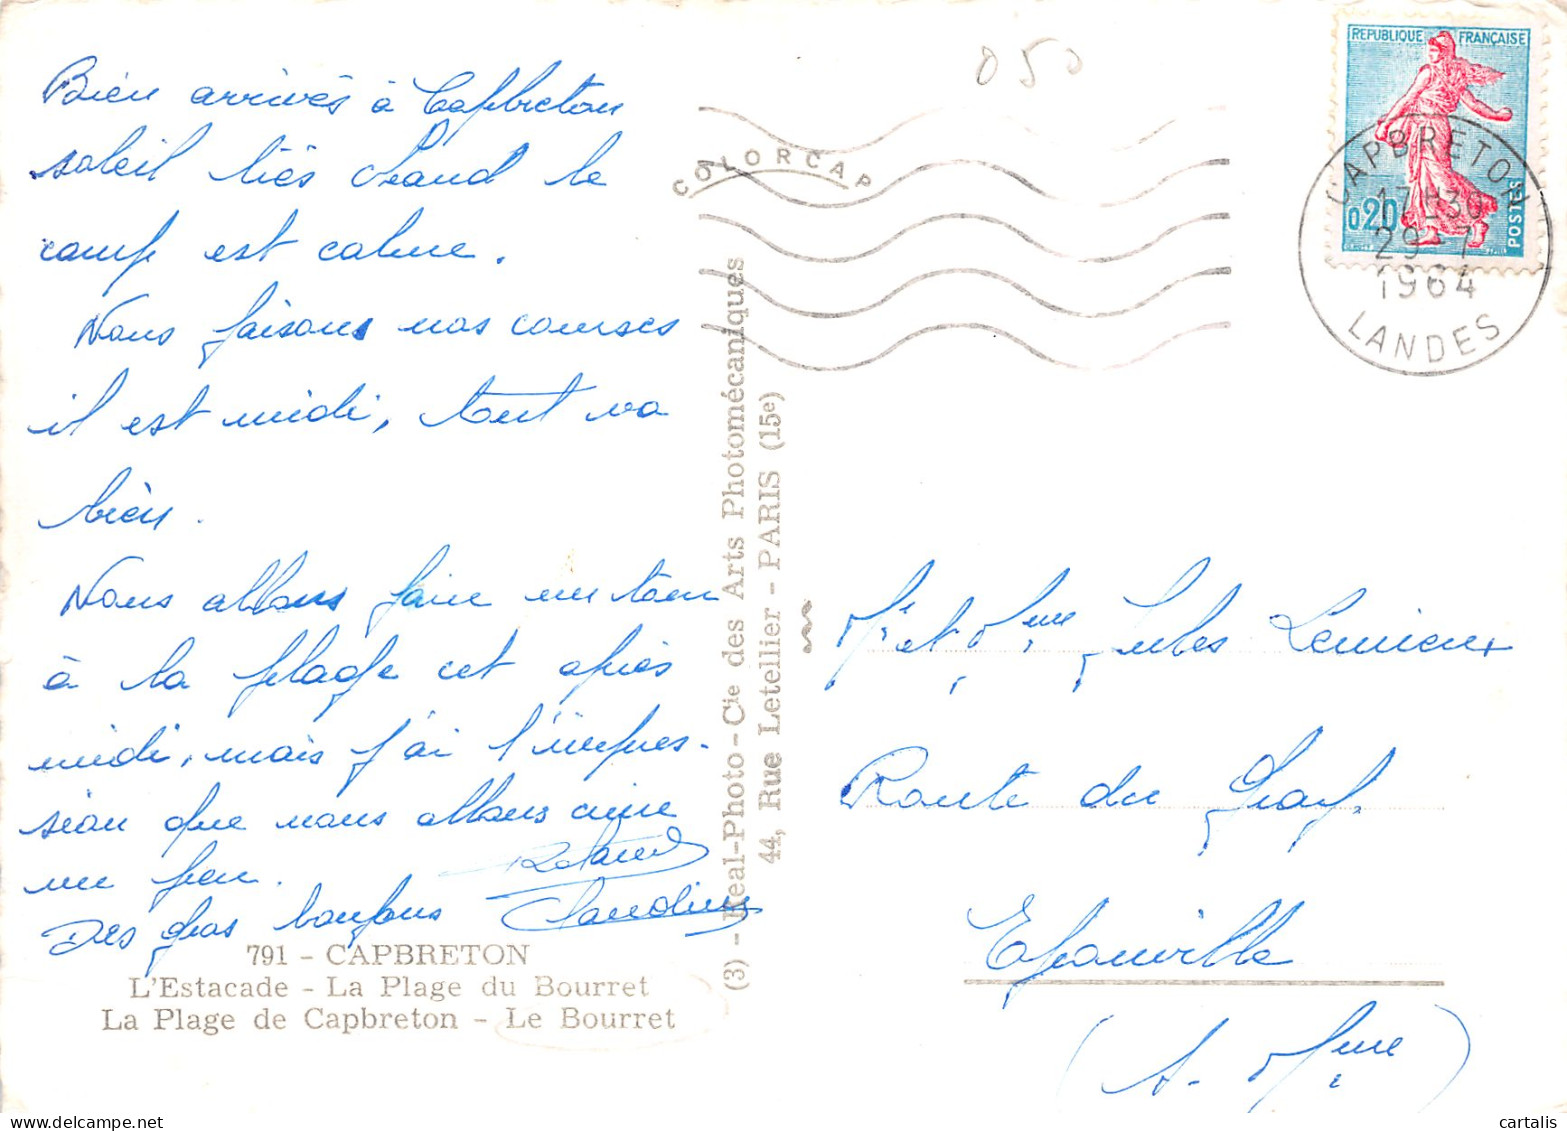 Bien arrivés à Capbreton
soleil très chaud le
camp est calme.
Nous faisons nos courses
il est midi, tout va
bien.
Nous allons faire un tour
à la plage cet après
midi, mais j'ai l'impres-
sion que nous allons cuire
un peu.
Roland
Des gros bonjours Claudine
791 - CAPBRETON
L'Estacade - La Plage du Bourret
La Plage de Capbreton - Le Bourret
(3) - Real-Photo - Cie des Arts Photomécaniques
44, Rue Letellier - PARIS (15e)
COLORCAP
050
REPUBLIQUE FRANÇAISE
0,20
POSTES
CAPBRETON
17 H30
29 - 7
1964
LANDES
Mr et Mme Jules Lemieux
Route du
Eponville
(S. Mme)
cartalis